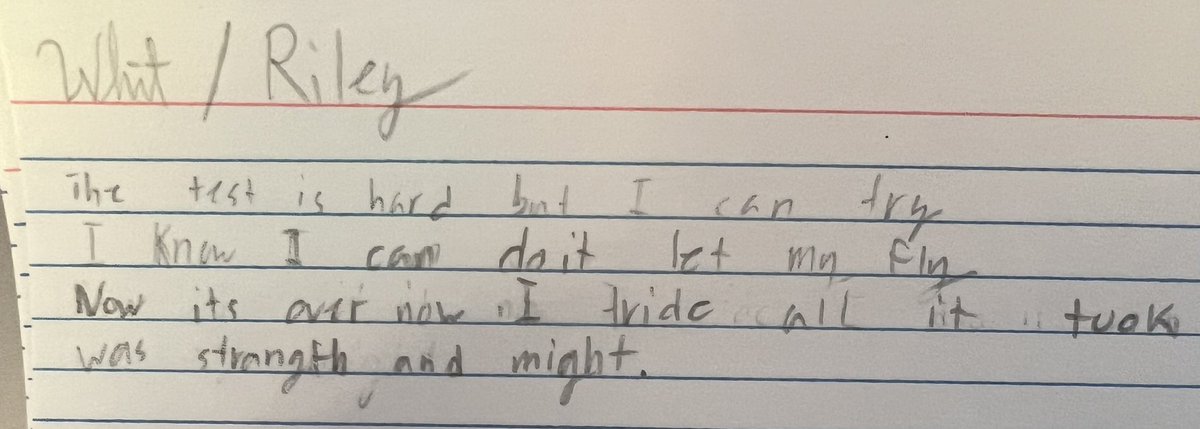 Whit / Riley
The test is hard but I can try
I Know I can do it let my Fly
Now its over now I tride all it tuok
was strangth and might.